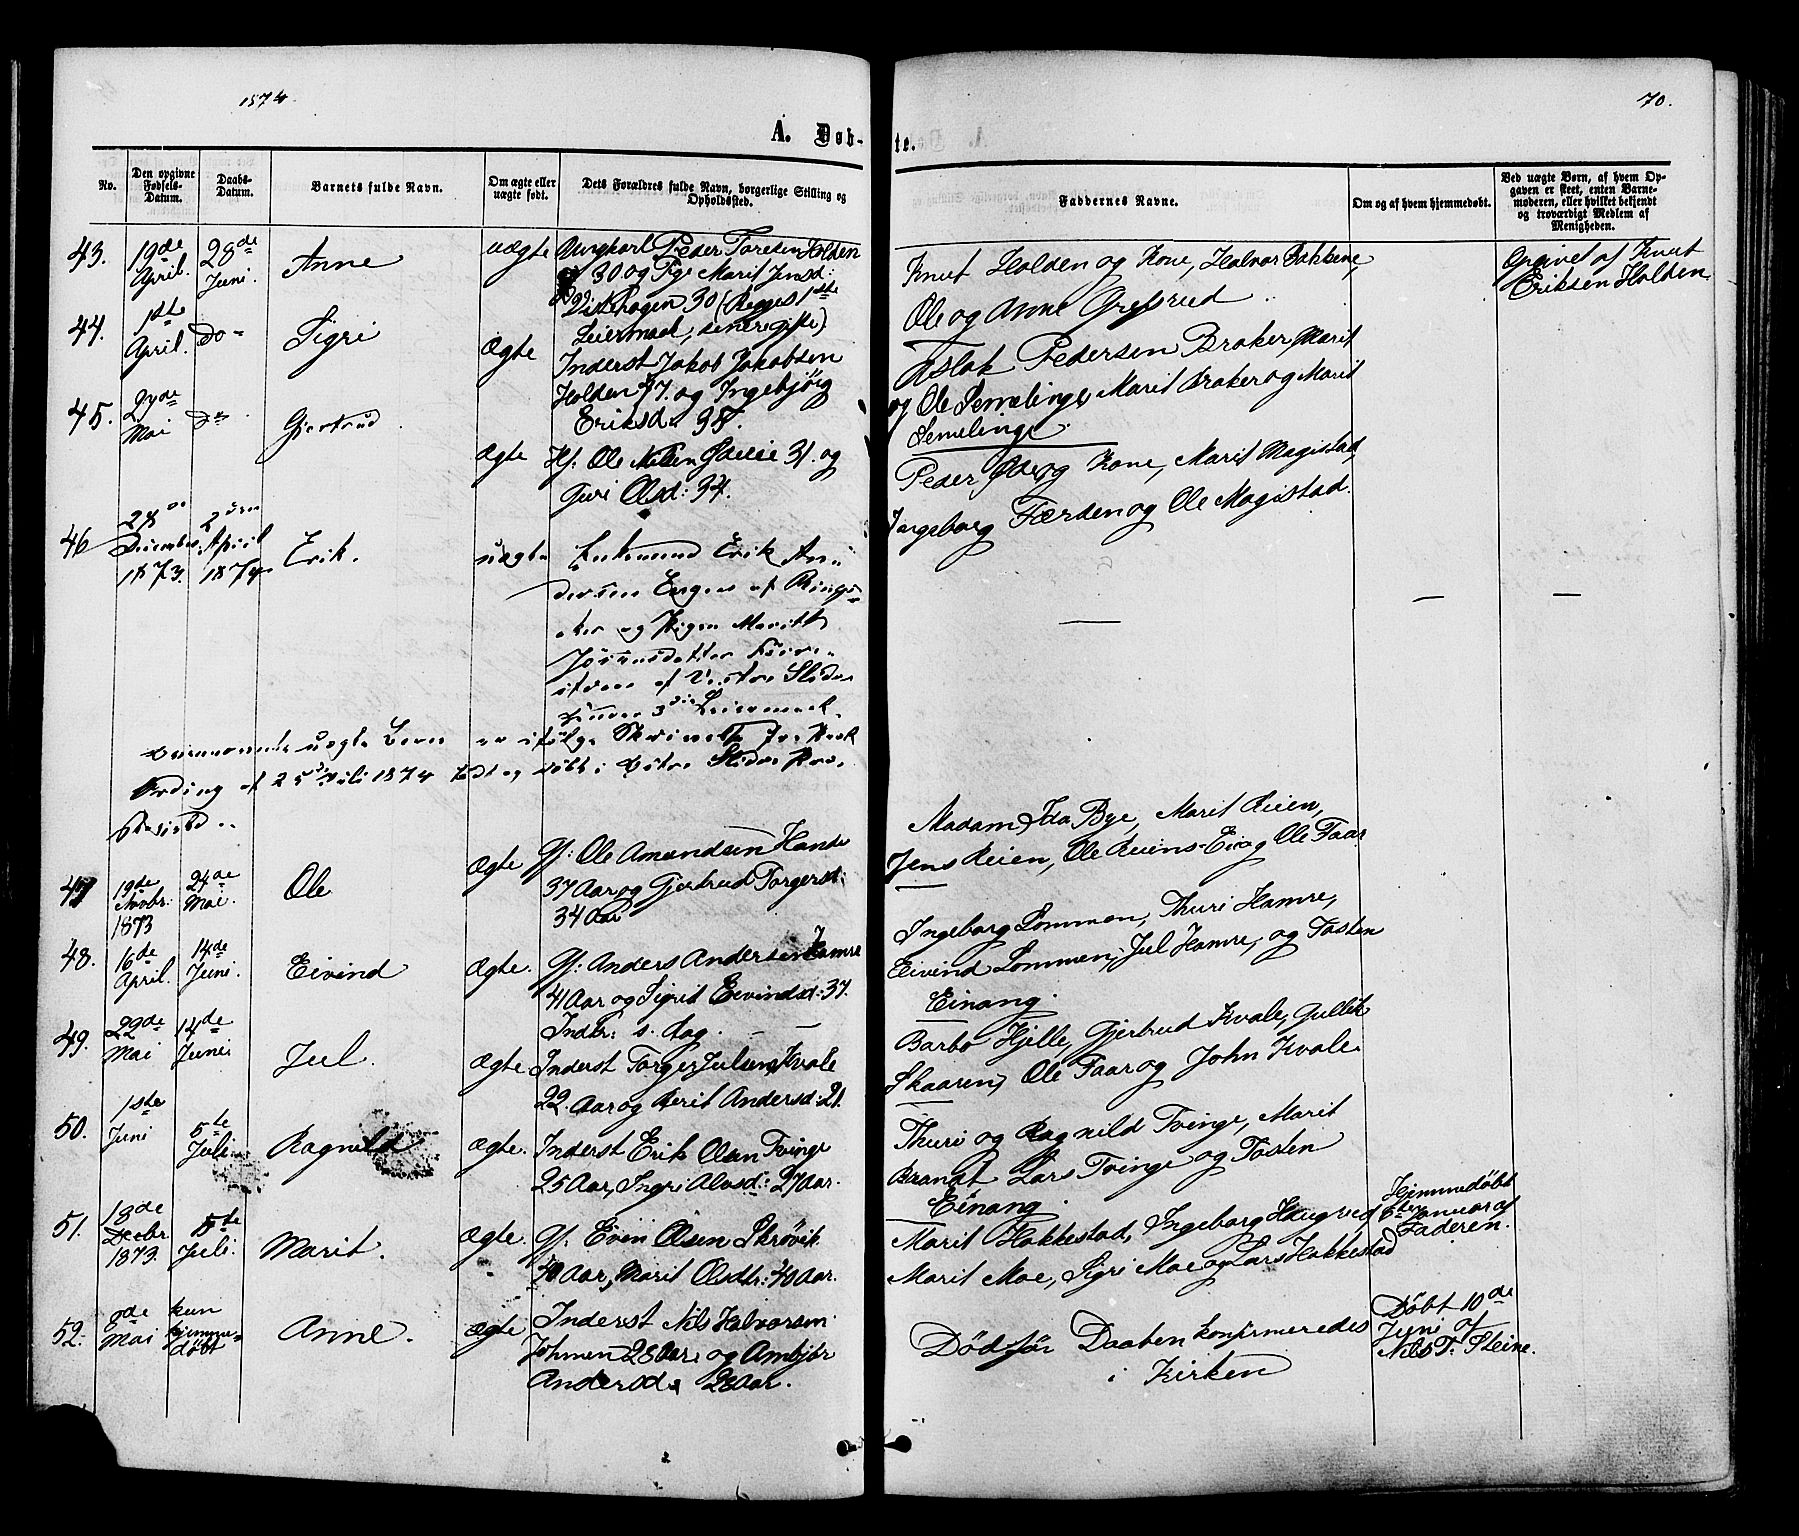 1874.
70.
A. Døb-
te.
No.
Den opgivne Fødsels-Datum.
Daabs-Datum.
Barnets fulde Navn.
Om ægte eller uægte født.
Dets Forældres fulde Navn, borgerlige Stilling og Opholdssted.
Faddernes Navne.
Om og af hvem hjemmedøbt.
Ved uægte Børn, af hvem Opgaven er skeet, enten Barnemoderen, eller hvilket bekjendt og troværdigt Medlem af Menigheden.
43.
19de April.
28de Juni.
Anne
uægte
Ungkarl Peder Toresen Holden
30 og Pige Marit Jensd:
30 (Begges 1ste
Leiermaal, senere gifte)
Knut Holden og Kone, Halvor Bakkene,
Ole og Anne Grefsrud
Opgivet af Knut
Eriksen Holden
44.
1ste April.
Do
Sigri
Ægte
Inderst Jakob Jakobsen
Holden 47. og Ingebjörg
Eriksd. 38.
Aslak Pedersen Braker, Marit
og Ole Semelinge, Marit Braker og Marit
Semelinge.
45.
27de Mai
Do
Gjertrud
Ægte
Gf: Ole Nilsen 31. og
Guri Olsd: 34.
Peder og Kone, Marit Magistad,
Ingeborg Færden og Ole Magistad.
46
28de December 1873.
2den April 1874
Erik.
uægte
Enkemand Erik An-
dersen Engen af Rings-
aker og Pigen Marith
af Vestre Slidre
hendes 3die Leiermaal.
uægte Barn er ifölge Skrivelse fra
af 25de Juli 1874 födt og döbt i Vestre Slidre
47
19de Novbr. 1873
24de Mai.
Ole
Ægte
Gf: Ole Amundsen Hande
37 Aar og Gjertrud Torgersd:
34 Aar
Madam Ida Bye, Marit Reien,
Jens Reien, Ole Reiens-Eie og Ole Faar
48.
16de April.
14de Juni.
Eivind
Ægte.
Gf: Anders Andersen Hamre
41 Aar og Sigrit Eivindsd: 37.
Ingeborg Lommen, Thuri Hamre,
Eivind Lommen, Jul Hamre, og Tosten
Einang.
49.
22de Mai
14de Juni
Jul.
Ægte
Inder: s. dag.
Inderst Torger Julsen Kvale
22. Aar og Berit Andersd: 21.
Barbo Hjelle, Gjertrud Kvale, Gullik
Skaaren, Ole Faar og John Kvale.
50.
1ste Juni
5te Juli.
Ragnild
Ægte.
Inderst Erik Olsen Tvinge
25 Aar, Ingri Alvsd: 27 Aar.
Thuri og Ragnild Tvinge, Marit
Brandt Lars Tvinge og Tosten
Einang.
51.
18de Decbr. 1873.
5te Juli.
Marit.
Ægte.
Gf. Even Olsen Skrövik
40 Aar, Marit Olsdtr: 40 Aar.
Marit Hakkestad, Ingeborg Haugved
Marit Moe, Sigri Moe og Lars Hakkestad
Hjemmedöbt
5te Januar af
Faderen.
52.
8de Mai
kun hjemme-döbt
Anne.
Ægte
Inderst Nils Halvorsen
28 Aar. og Ambjör
Andersd. 28 Aar.
Död för Daaben konfirmeredes
i Kirken
Döbt 10de
Juni af
Nils T. Steine.